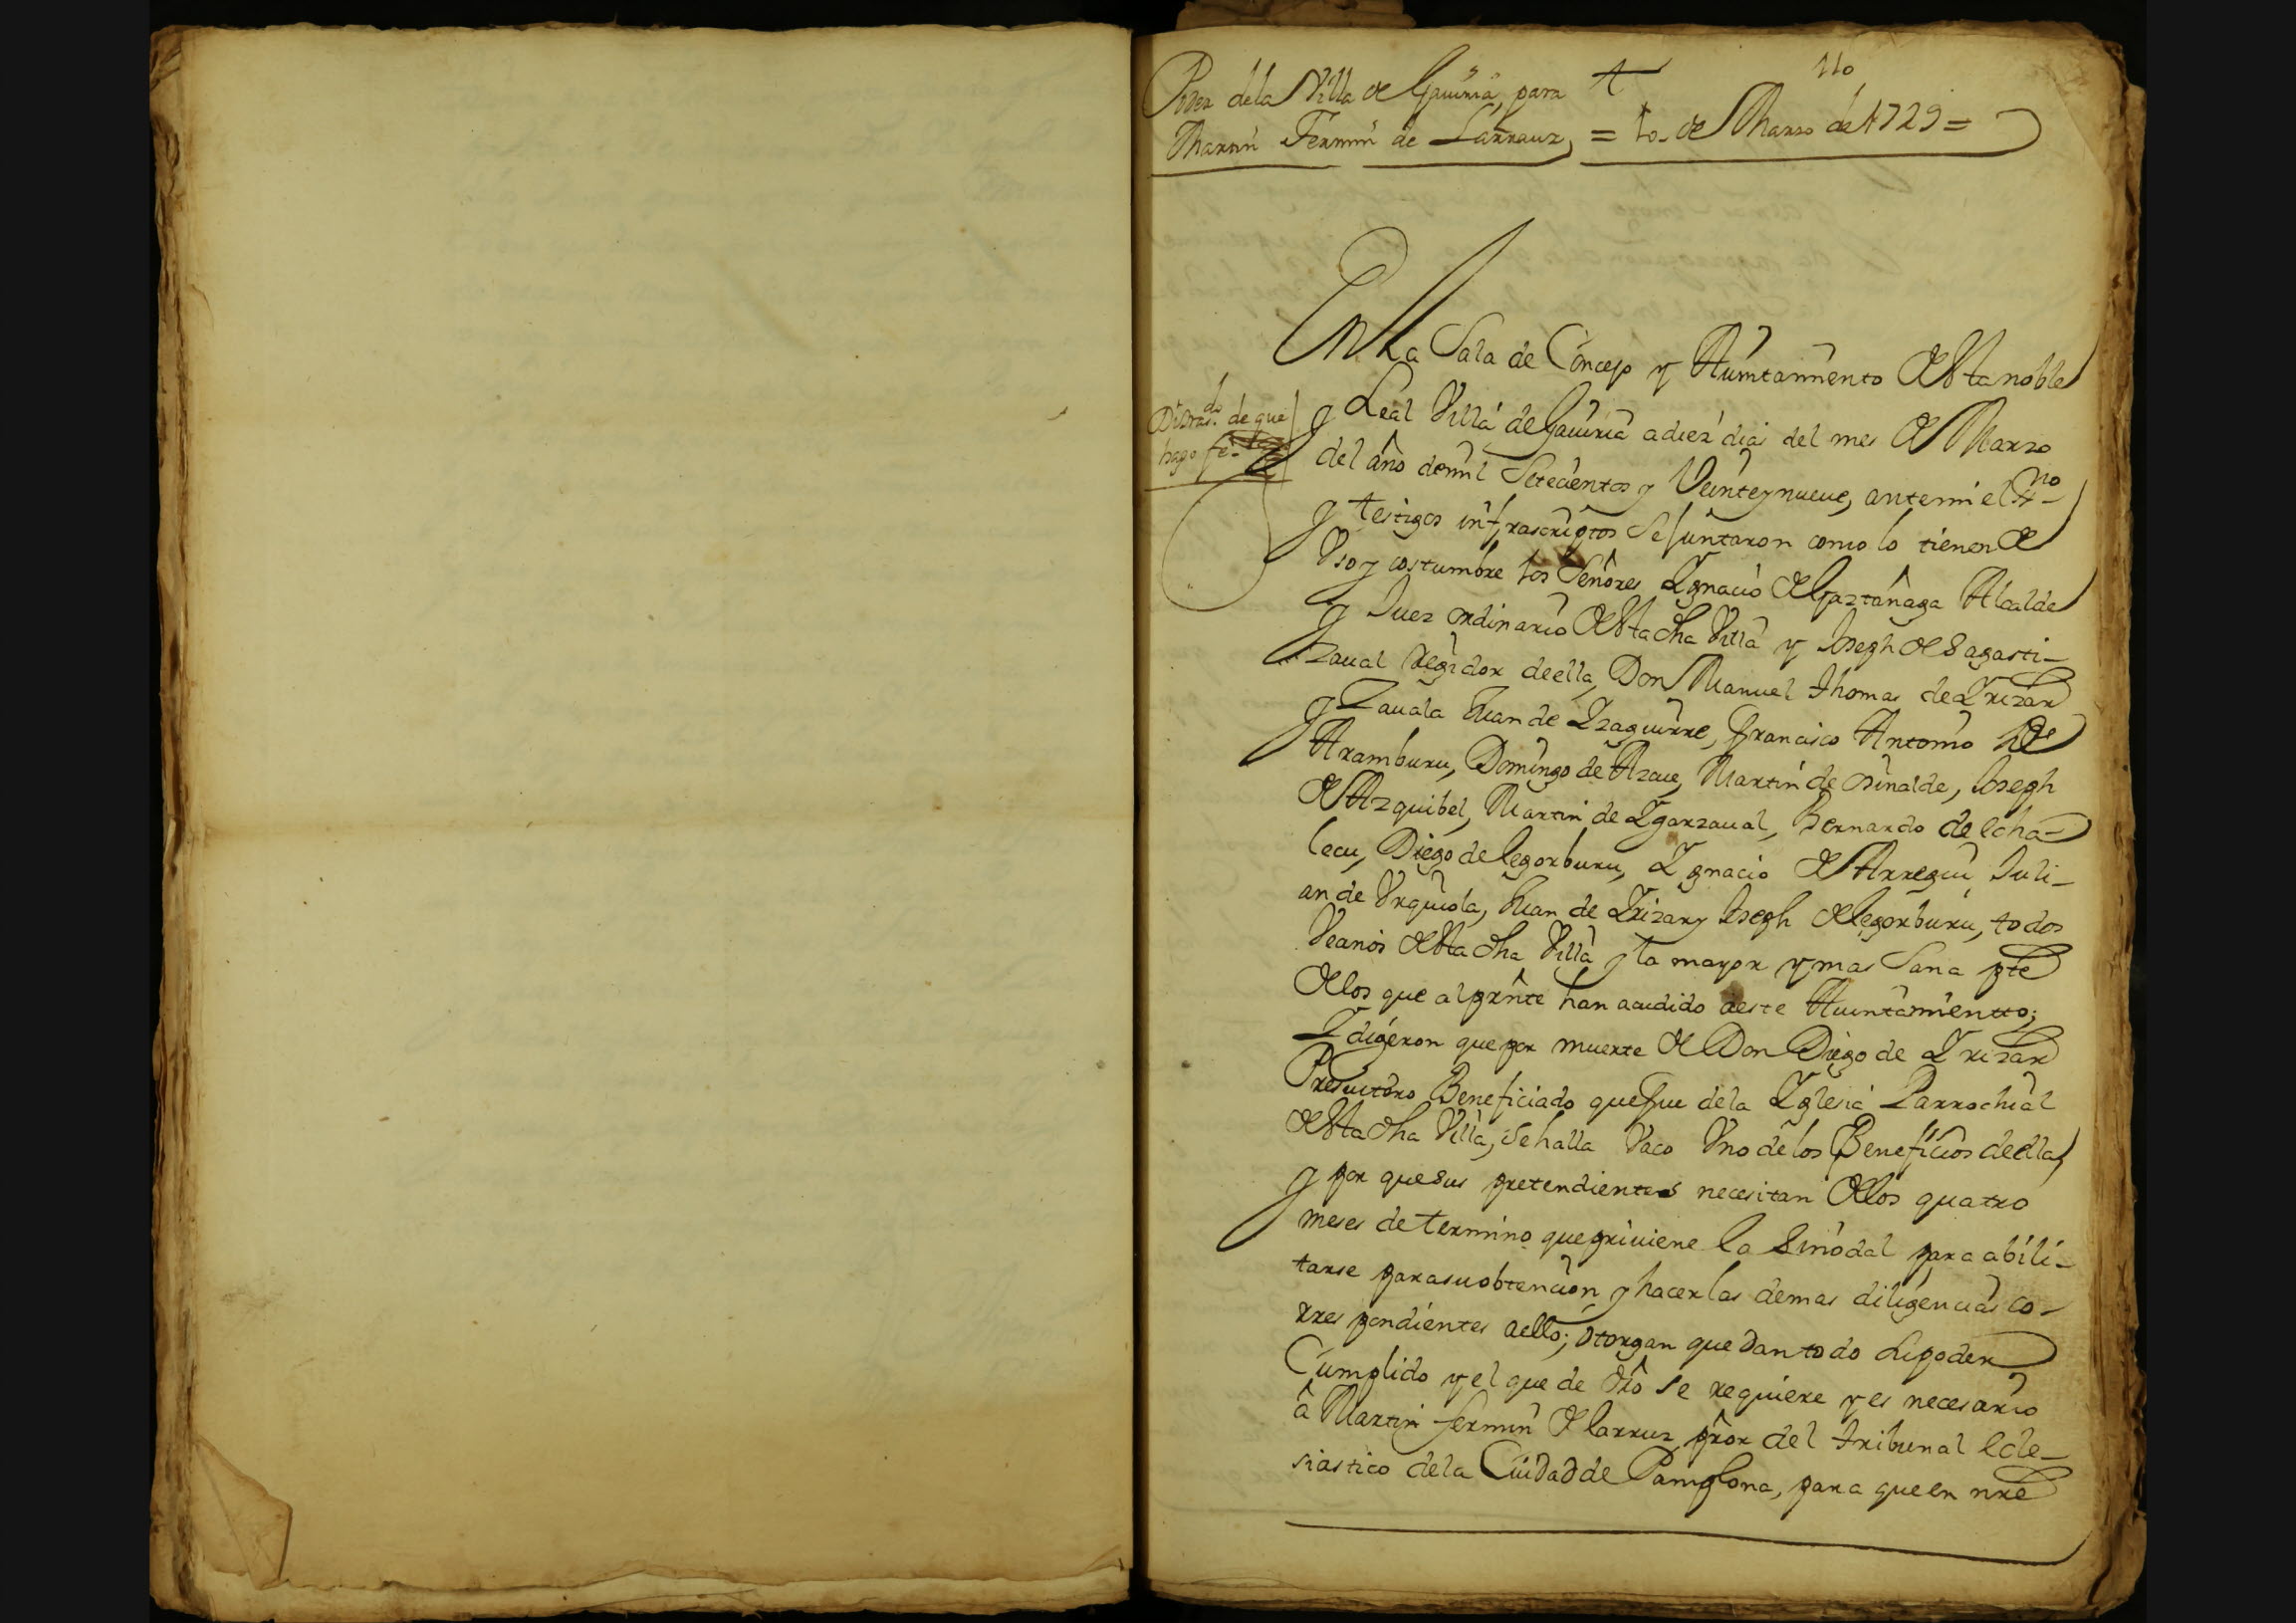 110
Poder dela Villa de Gauiria, para
Martin Fermin de Larraur, = 10- de Marzo de 1729 =
En la Sala de Concejo y Aiuntamiento de esta noble
y Leal Villa de Gauiria a diez dias del mes de Marzo
Di dos tras.dos de que
hago fe.
del año de mil Setecientos y Veinte y nueue, antemi el Ssno
y testigos infrascriptos Se Juntaron como lo tienen de
Vso y costumbre los Señores Ygnacio de Gaztañaga Alcalde
y Juez ordinario de esta dha Villa y Joseph de Sagasti-
zaual Regidor de ella, Don Manuel Thomas de Yrizar
y Zauala Juan de Yzaguirre, Francisco Antonio de
Aramburu, Domingo de Azcue, Martin de Osinalde, Joseph
de Azquibel, Martin de Ygarzaual, Bernardo de Echa-
lecu, Diego de Legorburu, Ygnacio de Arregui, Juli-
an de Vrquiola, Juan de Yrizar y Joseph de Legorburu, todos
Vecinos de esta dha Villa y la mayor y mas Sana pte
de los que al prñte han acudido a este Aiuntamientto;
Y digeron que por muerte de Don Diego de Yrizar
Presuitero Beneficiado que fue dela Yglesia Parrochial
de esta dha Villa, se halla Vaco Vno de los Beneficios de ella,
y por que sus pretendientes necesitan de los quatro
meses de termino que priuiene la Sinodal para abili-
tarse para su obtencion y hacer las demas diligencias co-
rres pondientes aello; otorgan que dan todo su poder
Cumplido y el que de dro se requiere y es necesario
â Martin fermin de larraur pror del tribunal ecle-
siastico dela Ciudad de Pamplona, para que en nre